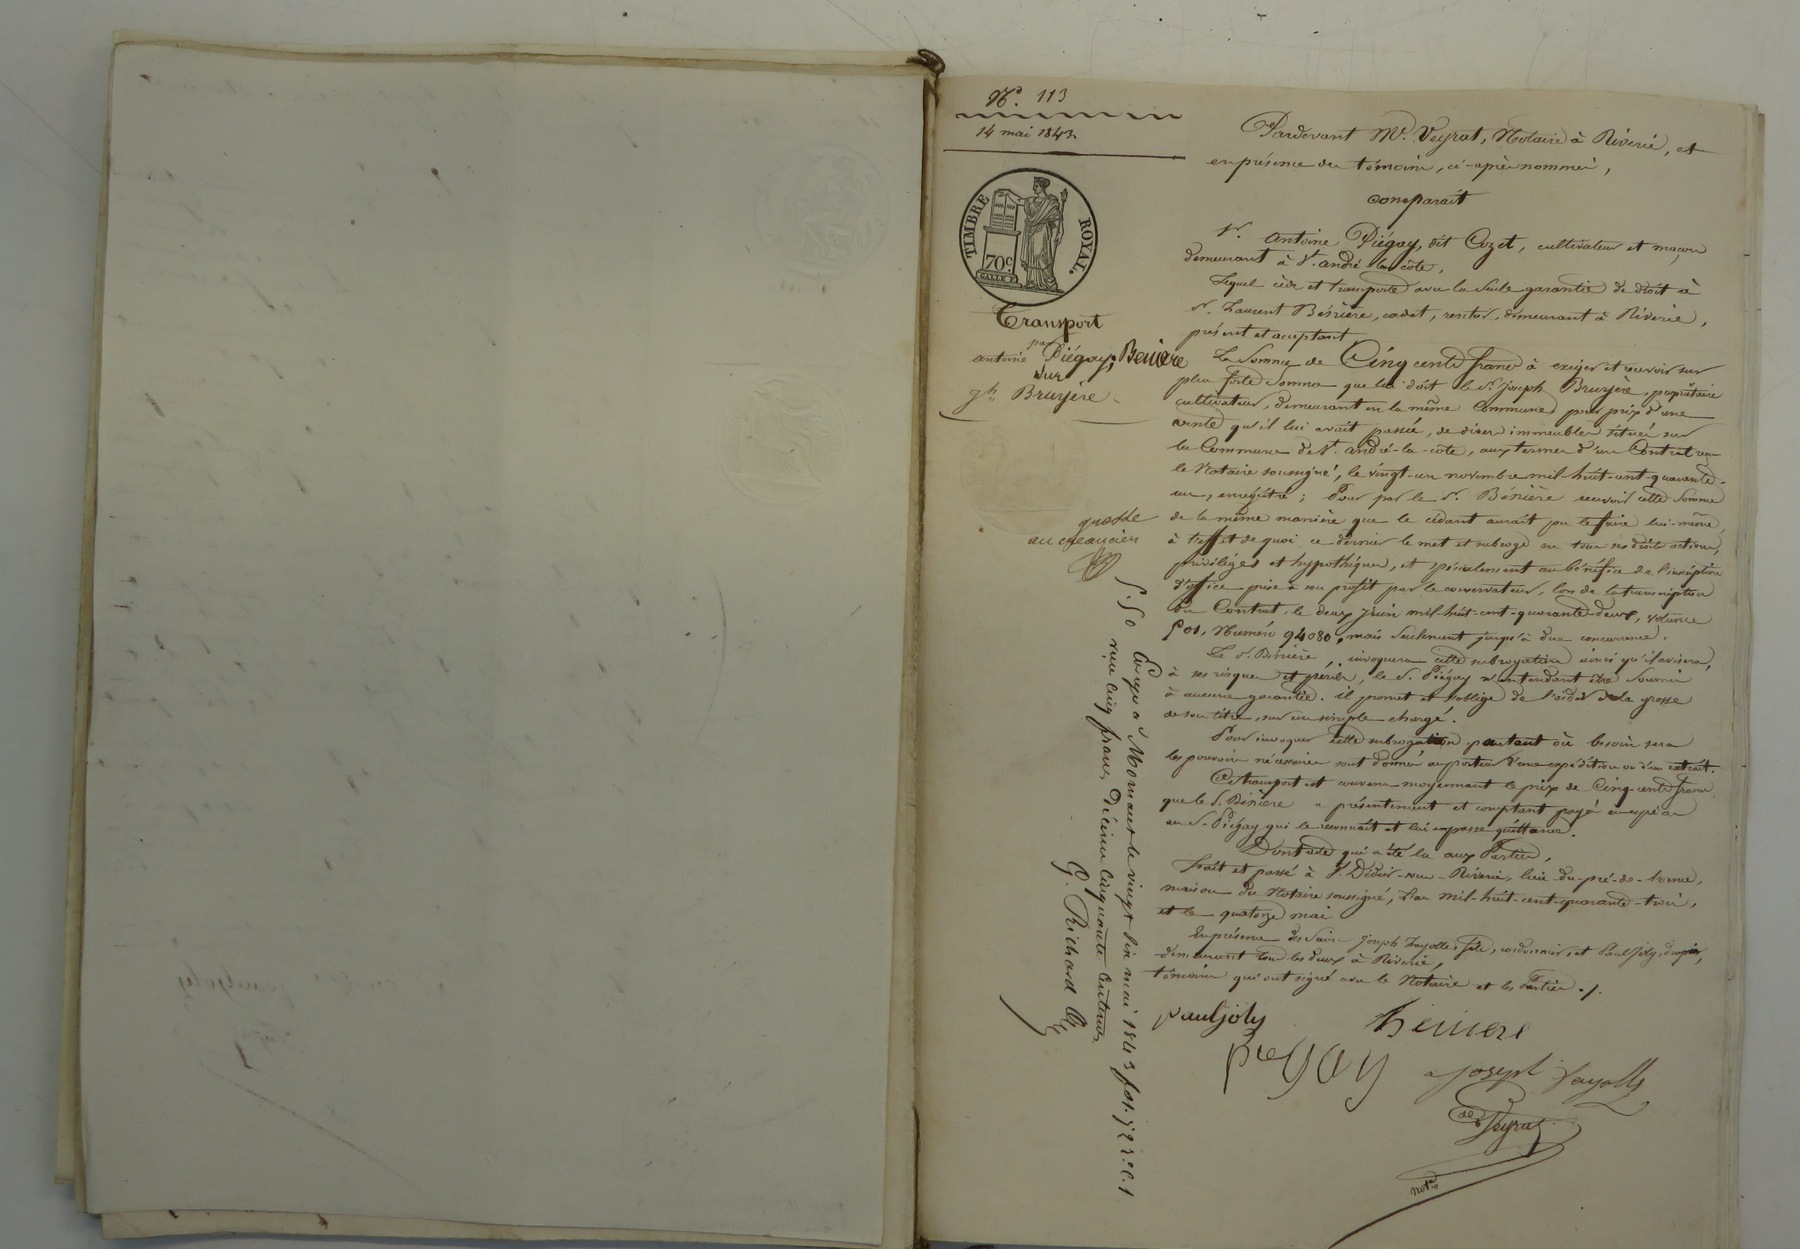 N.º 113
14 mai 1843.
TIMBRE ROYAL.
70c
Transport
par
antoine Piégay, à Benière
sur
jh. Bruyère
grosse
au créancier
Pardevant Me. Veyrat, Notaire à Riverie, et
en présence des témoins, ci-après nommés,
comparait
Sr. Antoine Piégay, dit Cozet, cultivateur et maçon
demeurant à St. andré-la-côte,
Lequel cède et transporte avec la seule garantie de droit à
Sr. Laurent Bénière, cadet, rentier, demeurant à Riverie,
présent et acceptant
La Somme de Cinq cents francs à exiger et recevoir sur
plus forte somme que lui doit le Sr. joseph Bruyère, propriétaire
cultivateur, demeurant en la même Commune, pour prix d'une
vente qu'il lui avait passée, de divers immeubles situés sur
la Commune de St. andré-la-côte, aux termes d'un Contrat reçu
le Notaire soussigné, le vingt-un novembre mil-huit-cent-quarante-
un, enregistré; Pour par le Sr. Bénière recevoir cette Somme
de la même manière que le cédant aurait pu le faire lui-même,
à l'effet de quoi ce dernier le met et subroge en tous ses droits, actions,
privilèges et hypothèques, et spécialement au bénéfice de l'inscription
d'office prise à son profit par le conservateur, lors de la transcription
du Contrat, le deux juin mil-huit-cent-quarante-deux, volume
501, Numéro 94080, mais seulement jusqu'à due concurrence.
Le Sr. Bénière, invoquera cette subrogation ainsi qu'il avisera,
à ses risques et périls, le Sr. Piégay n'entendant être soumis
à aucune garantie. il promet et s'oblige de l'aider de la grosse
de son titre, sur un simple chargé.
Pour invoquer cette subrogation partout où besoin sera
les pouvoirs nécessaires sont donnés au porteur d'une expédition ou d'un extrait.
Ce transport est convenu moyennant le prix de Cinq-cents francs
que le S. Bénière a présentement et comptant payé en espèces
au Sr. Piégay qui le reconnait et lui en passe quittance.
Dont acte qui a été lu aux Parties,
Fait et passé à St. Didier-sous-Riverie, lieu du pré-de-l'orme,
maison du Notaire soussigné, L'an mil-huit-cent-quarante-trois,
et le quatorze mai
En présence des Sieurs Joseph Fayolle, fils, cordonnier, et Paul Joly, drapier,
demeurant tous les deux à Riverie,
témoins qui ont signé avec le Notaire et les Parties ./.
paul joly
benière
piegay
joseph fayolle
Veyrat
not.re
5.50 Enreg. à Mornant le vingt six mai 1843 fol. 72 r.º C. 1
reçu cinq francs Décime Cinquante Centimes
G. Richard